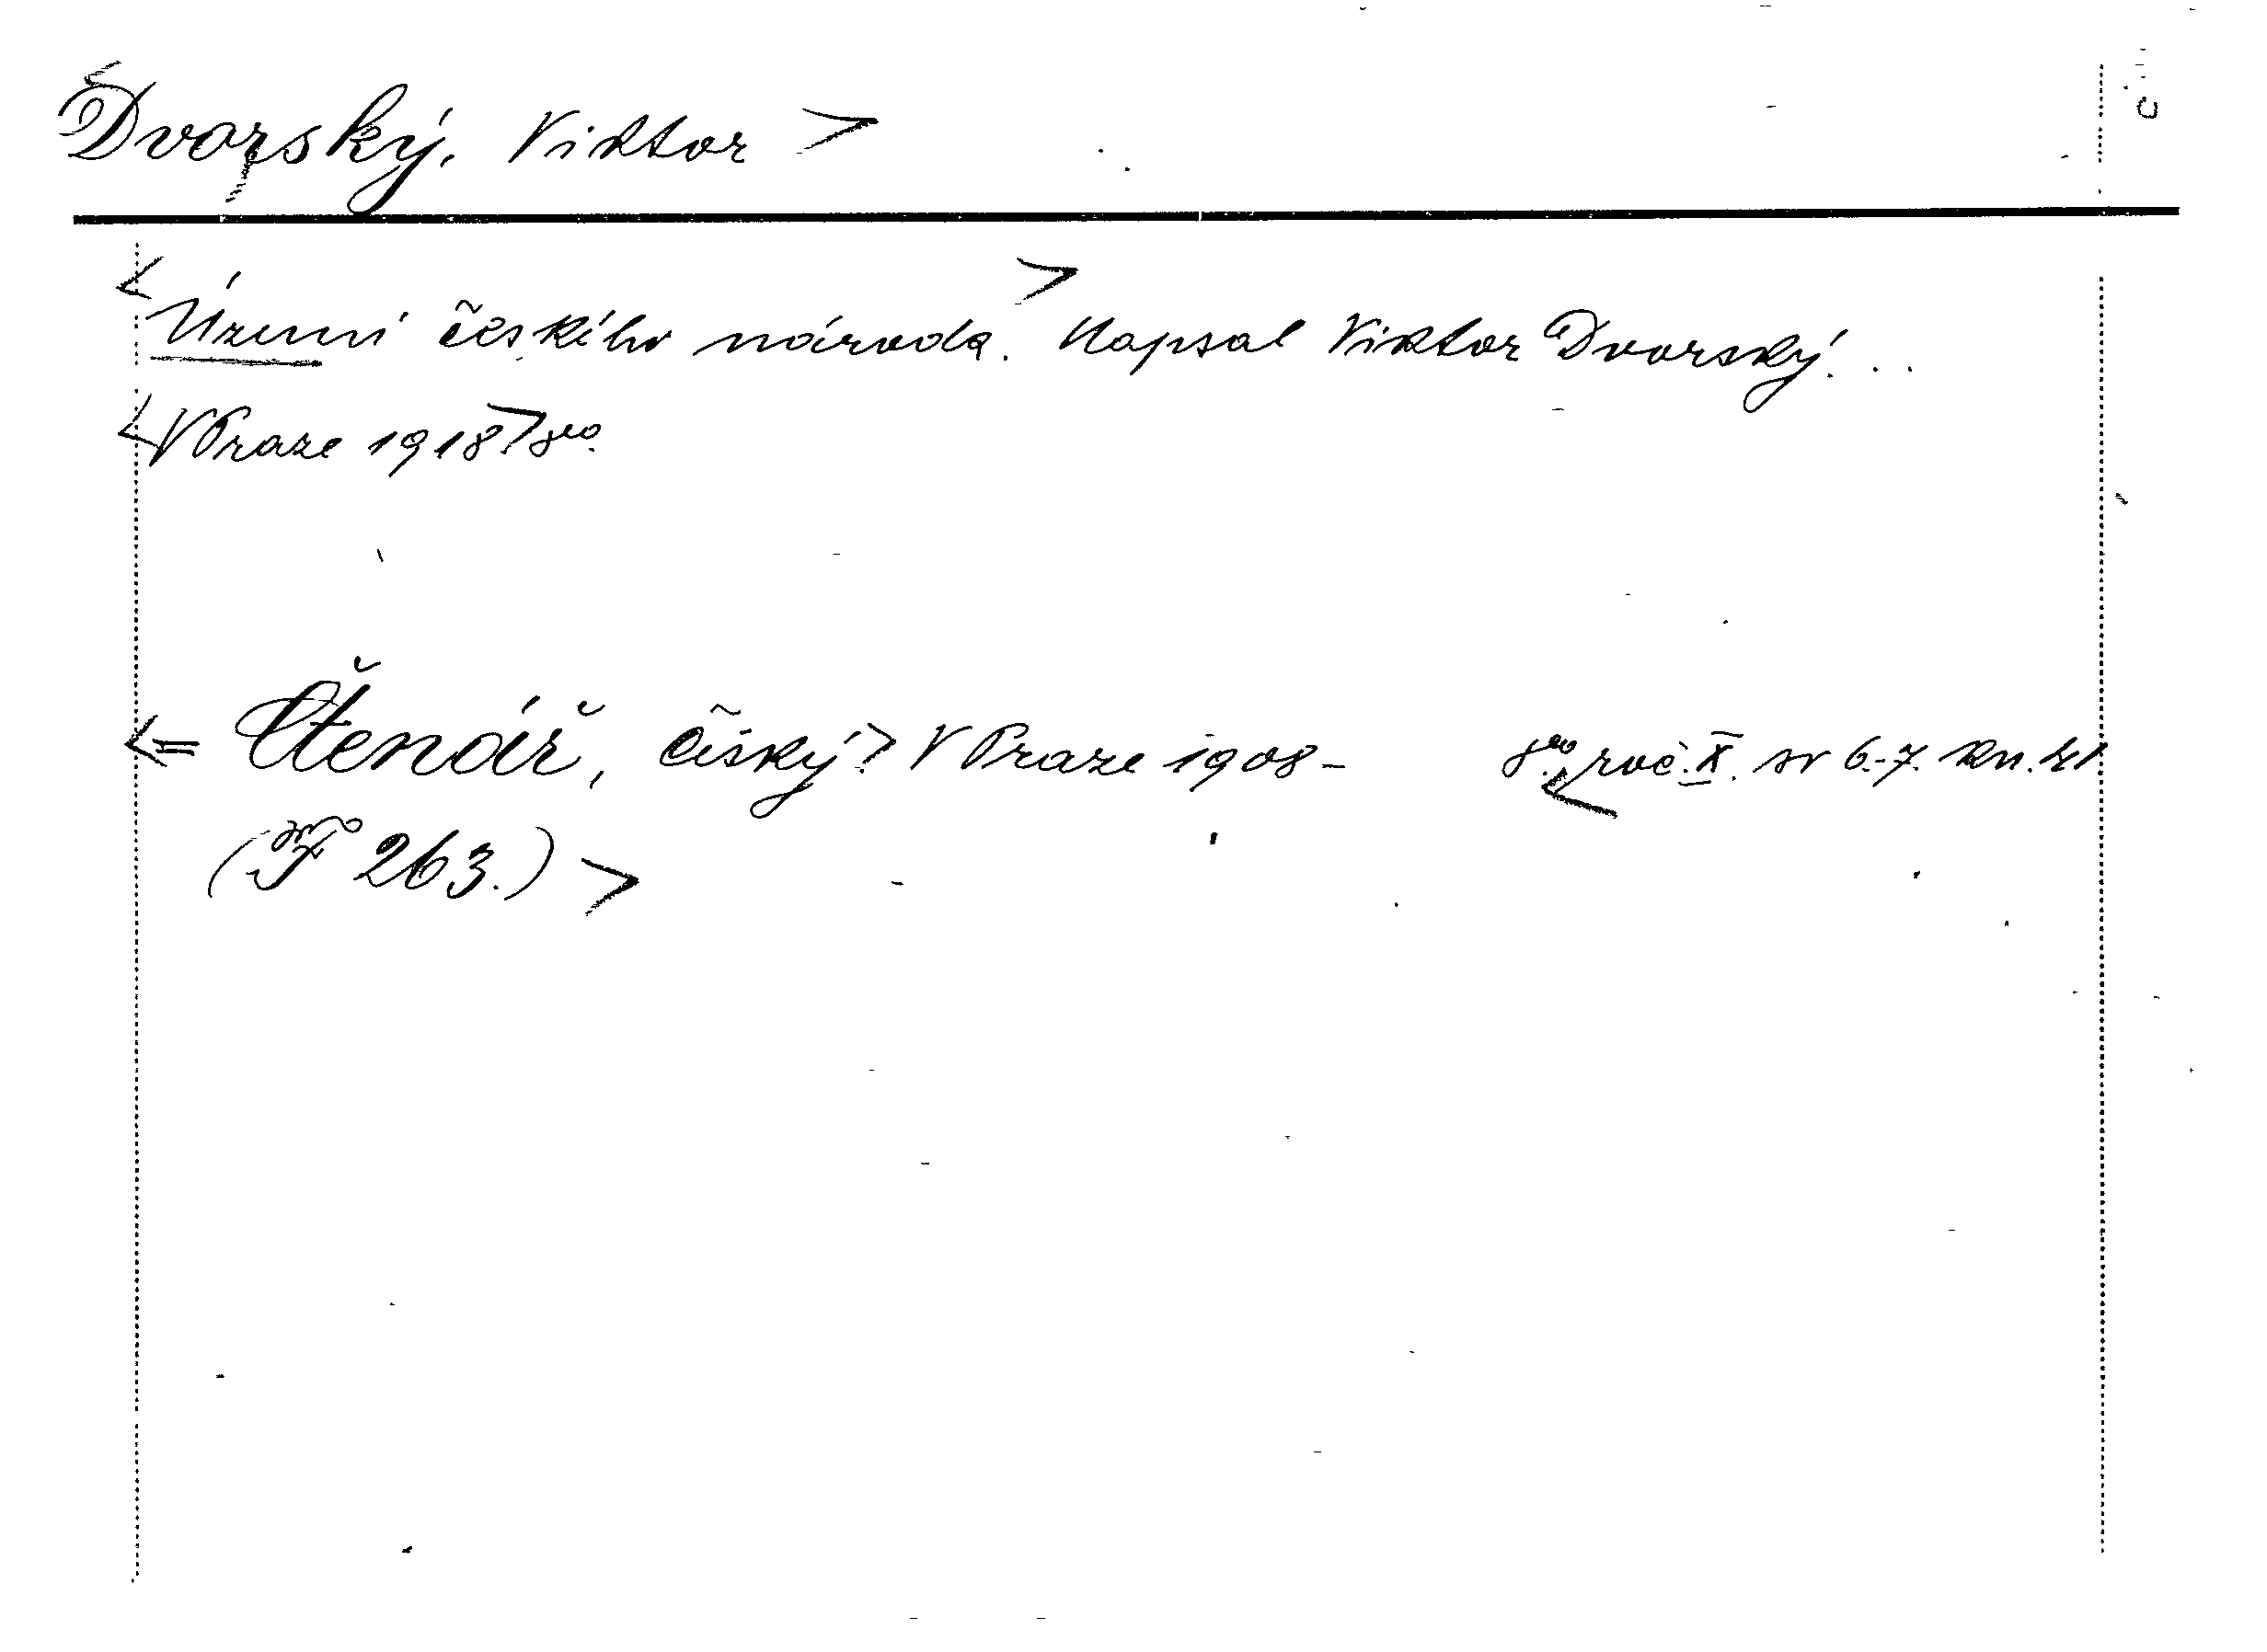 <Dvorský, Viktor>
<Území českého národa.> Napsal Viktor Dvorský...
<V Praze 1918> 8vo.
<= Čtenář, Český.> V Praze 1908- 8vo. <roč. X. sv 6.-7. kn. 41
(F 263.)>